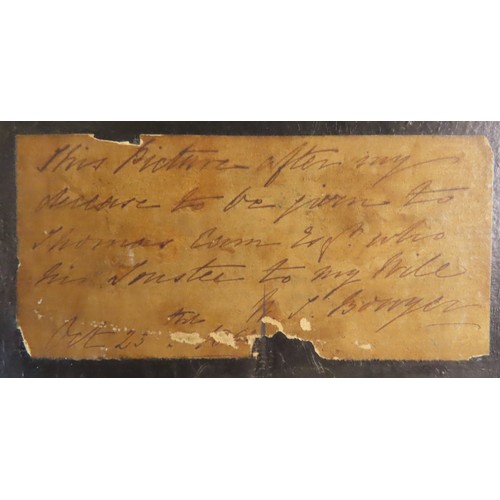 This Picture after my
decease to be given to
Thomas Esqr. who
his Trustee to my Wife
W. S. Bowyer
Oct 23